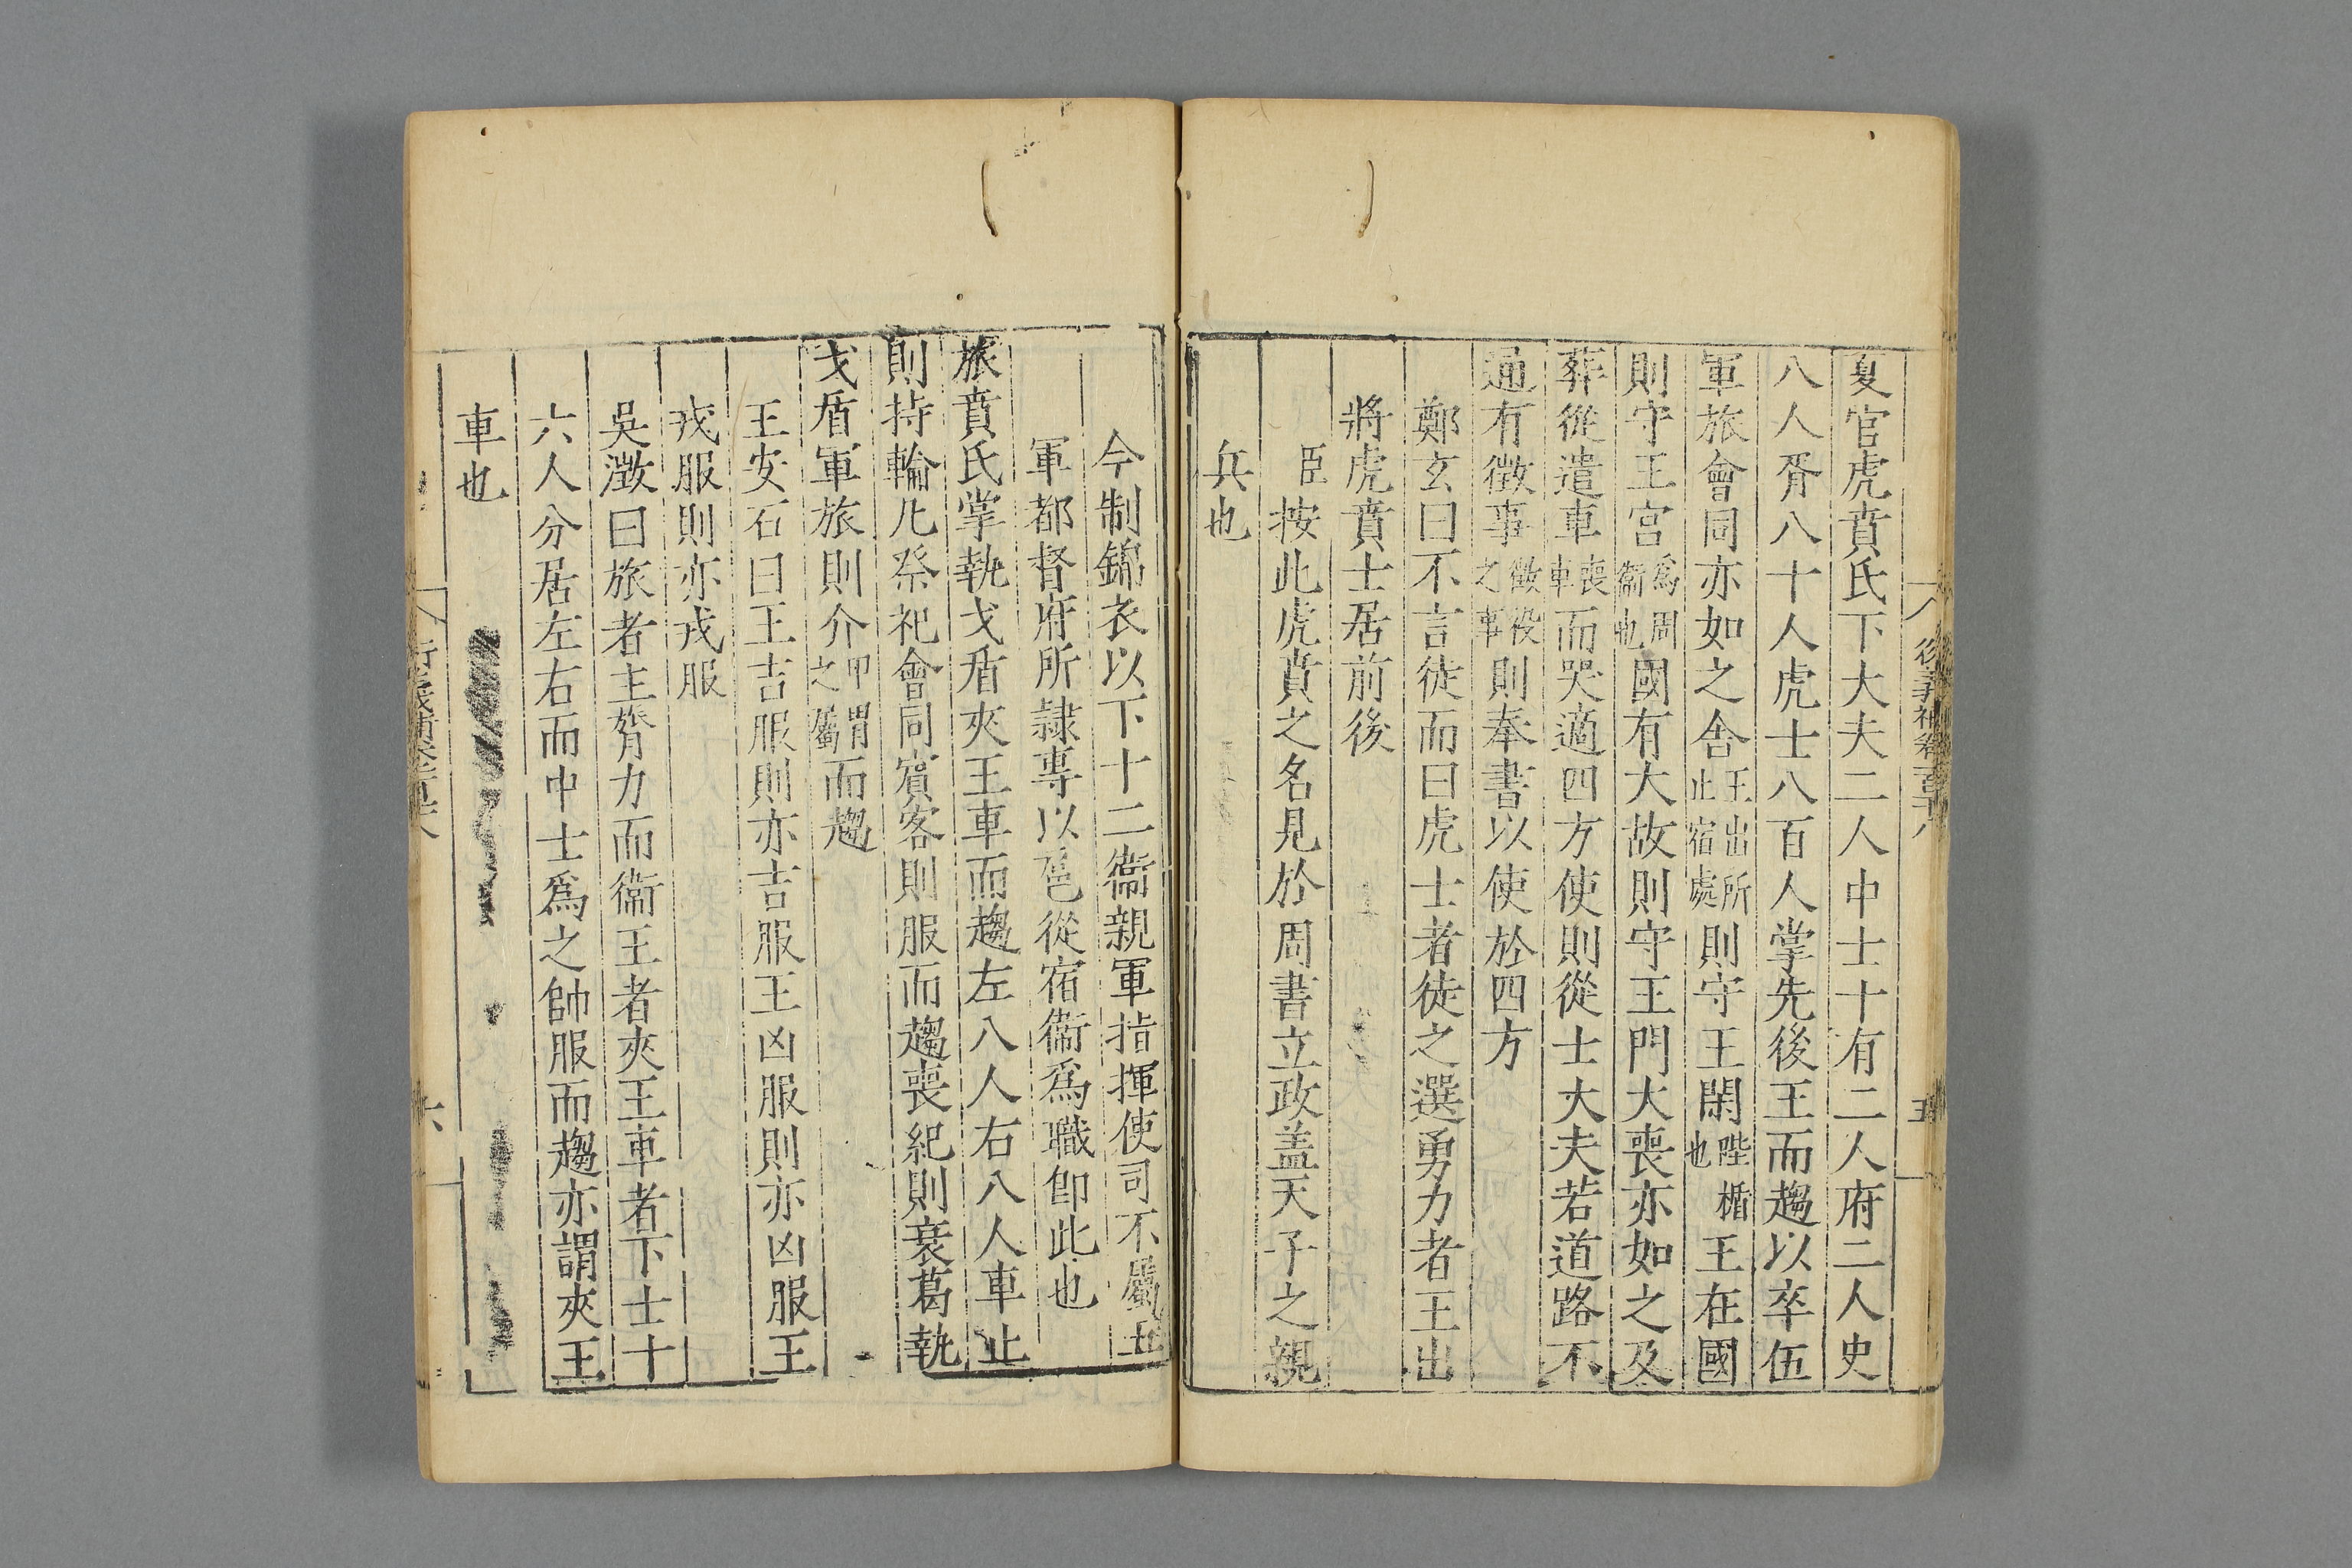 夏官虎賁氏下大夫二人中士十有二人府二人史
八人胥八十人虎士八百人掌先後王而趨以卒伍
軍旅會同亦如之舍王出所止宿處則守王閑陛楯也王在國
則守王宮爲周衞也國有大故則守王門大喪亦如之及
葬從遣車喪車而哭適四方使則從士大夫若道路不
通有徵事徵役之事則奉書以使於四方
鄭玄曰不言徒而曰虎士者徒之選勇力者王出
將虎賁士居前後
臣按此虎賁之名見於周書立政盖天子之親
兵也
五
今制錦衣以下十二衞親軍指揮使司不屬五
軍都督府所隷專以扈從宿衞爲職卽此也
旅賁氏掌執戈盾夾王車而趨左八人右八人車止
則持輪凡祭祀會同賓客則服而趨喪紀則衰葛執
戈盾軍旅則介甲謂之屬而趨
王安石曰王吉服則亦吉服王凶服則亦凶服王
戎服則亦戎服
吳澂曰旅者主膂力而衞王者夾王車者下士十
六人分居左右而中士爲之帥服而趨亦謂夾王
車也
六